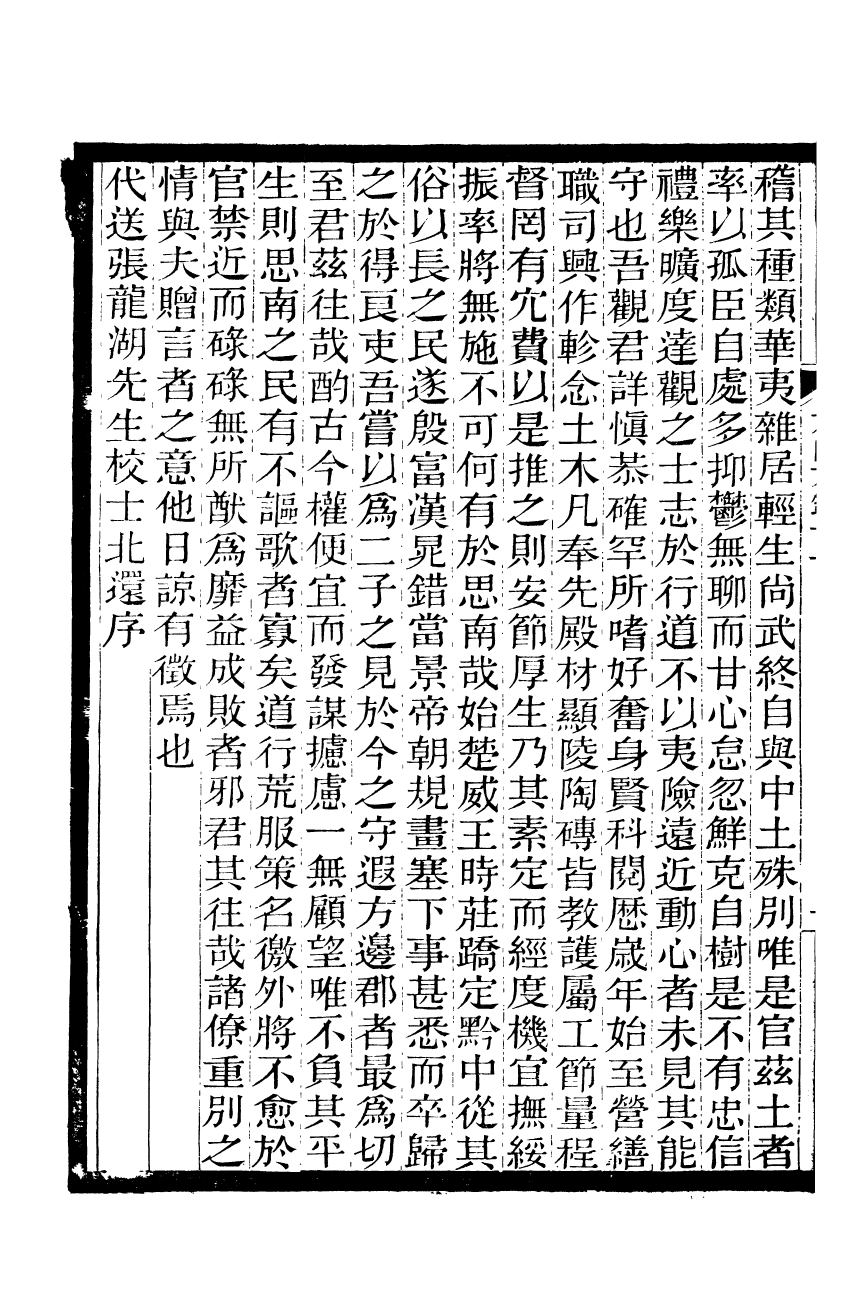 稽其種類華夷雜居輕生尚武終自與中土殊別唯是官茲土者
率以孤臣自處多抑鬱無聊而甘心怠忽鮮克自樹是不有忠信
禮樂曠度達觀之士志於行道不以夷險遠近動心者未見其能
守也吾觀君詳愼恭確罕所嗜好奮身賢科閱歷歲年始至營繕
職司興作軫念土木凡奉先殿材顯陵陶磚皆教護屬工節量程
督罔有宂費以是推之則安節厚生乃其素定而經度機宜撫綏
振率將無施不可何有於思南哉始楚威王時莊蹻定黔中從其
俗以長之民遂殷富漢晁錯當景帝朝規畫塞下事甚悉而卒歸
之於得良吏吾嘗以爲二子之見於今之守遐方邊郡者最爲切
至君茲往哉酌古今權便宜而發謀攄慮一無顧望唯不負其平
生則思南之民有不謳歌者寡矣道行荒服策名徼外將不愈於
官禁近而碌碌無所猷爲靡益成敗者邪君其往哉諸僚重別之
情與夫贈言者之意他日諒有徵焉也
代送張龍湖先生校士北還序